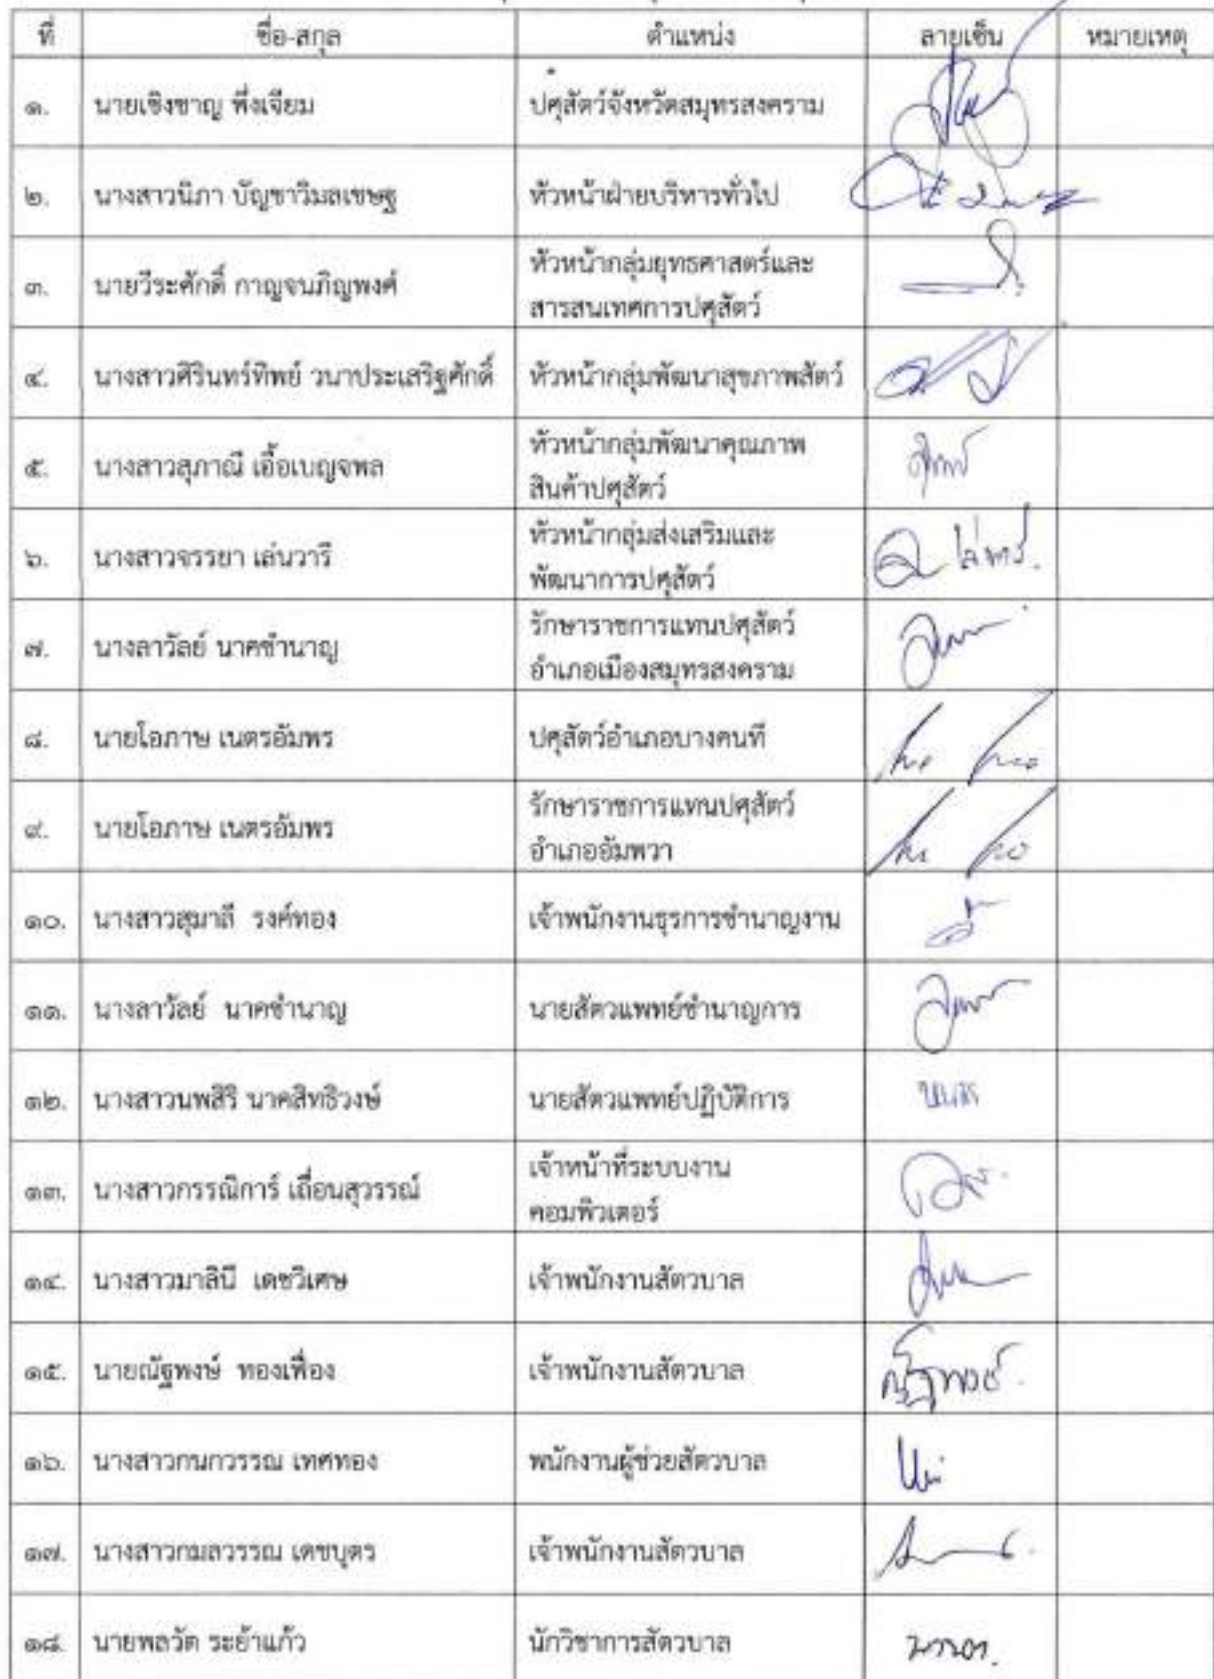 ที่ ชื่อ-สกุล ตำแหน่ง ลายเซ็น หมายเหตุ
๑. นายเชิงชาญ พึ่งเจียม ปศุสัตว์จังหวัดสมุทรสงคราม
๒. นางสาวนิภา บัญชาวิมลเชษฐ หัวหน้าฝ่ายบริหารทั่วไป
๓. นายวีระศักดิ์ กาญจนภิญพงศ์ หัวหน้ากลุ่มยุทธศาสตร์และ
สารสนเทศการปศุสัตว์
๔. นางสาวศิรินทร์ทิพย์ วนาประเสริฐศักดิ์ หัวหน้ากลุ่มพัฒนาสุขภาพสัตว์
๕. นางสาวสุภาณี เอื้อเบญจพล หัวหน้ากลุ่มพัฒนาคุณภาพ
สินค้าปศุสัตว์
๖. นางสาวจรรยา เล่นวารี หัวหน้ากลุ่มส่งเสริมและ
พัฒนาการปศุสัตว์
๗. นางลาวัลย์ นาคชำนาญ รักษาราชการแทนปศุสัตว์
อำเภอเมืองสมุทรสงคราม
๘. นายโอภาษ เนตรอัมพร ปศุสัตว์อำเภอบางคนที
๙. นายโอภาษ เนตรอัมพร รักษาราชการแทนปศุสัตว์
อำเภออัมพวา
๑๐. นางสาวสุมาลี รงค์ทอง เจ้าพนักงานธุรการชำนาญงาน
๑๑. นางลาวัลย์ นาคชำนาญ นายสัตวแพทย์ชำนาญการ
๑๒. นางสาวนพสิริ นาคสิทธิวงษ์ นายสัตวแพทย์ปฏิบัติการ
๑๓. นางสาวกรรณิการ์ เถื่อนสุวรรณ์ เจ้าหน้าที่ระบบงาน
คอมพิวเตอร์
๑๔. นางสาวมาลินี เดชวิเศษ เจ้าพนักงานสัตวบาล
๑๕. นายณัฐพงษ์ ทองเฟื่อง เจ้าพนักงานสัตวบาล ณัฐพงษ์
๑๖. นางสาวกนกวรรณ เทศทอง พนักงานผู้ช่วยสัตวบาล
๑๗. นางสาวกมลวรรณ เดชบุตร เจ้าพนักงานสัตวบาล
๑๘. นายพลวัต ระย้าแก้ว นักวิชาการสัตวบาล